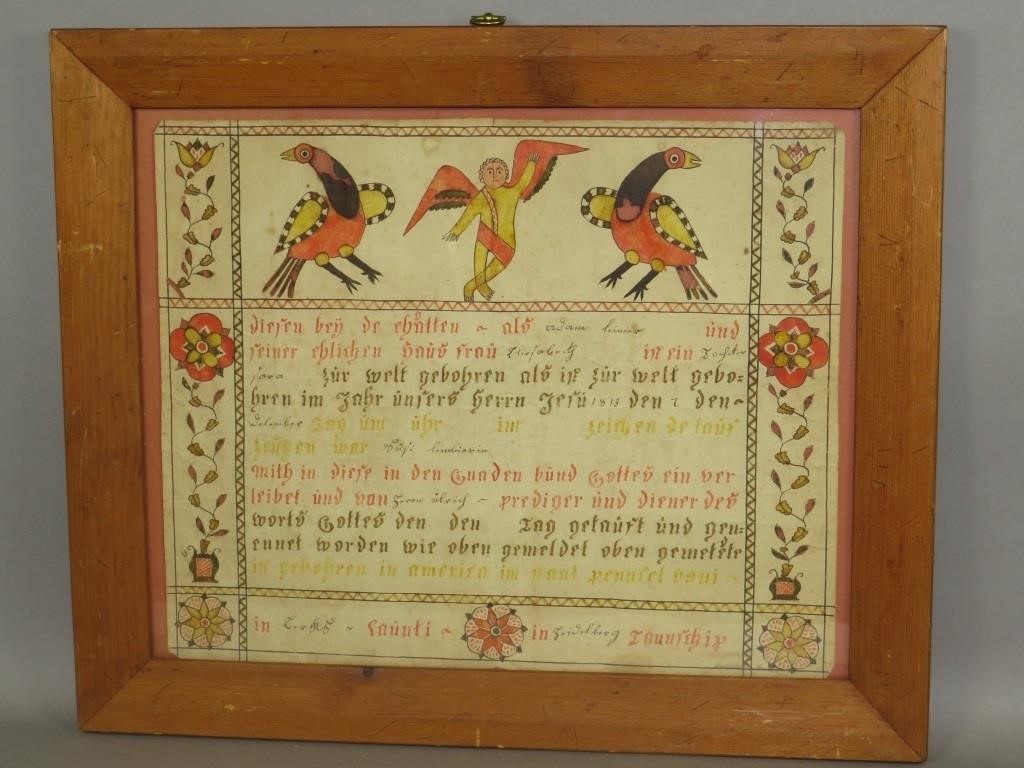 diesen beÿ de ehůtten ~ als adam leiner ünd
seiner ehlichen Haüs fraü Eliesabeth ist ein Tochter
sara zür welt gebohren als ist zür welt gebo=
hren im Jahr ünsers Herrn Jesü 1813 den 2 den~
Tag üm ühr im zeichen de taüf
zeügen war Süsi
mith in diese in den Gnaden bünd Gottes ein ver
leibet ünd von Herrn ülrich ~ prediger ünd diener des
worts Gottes den den Tag getaüft ünd gen=
ennet worden wie oben gemeldet oben gemetete
ist gebohren in america im staat pennsel vani~
in Berks ~ Caünti ~ in Heidelberg Taunschip